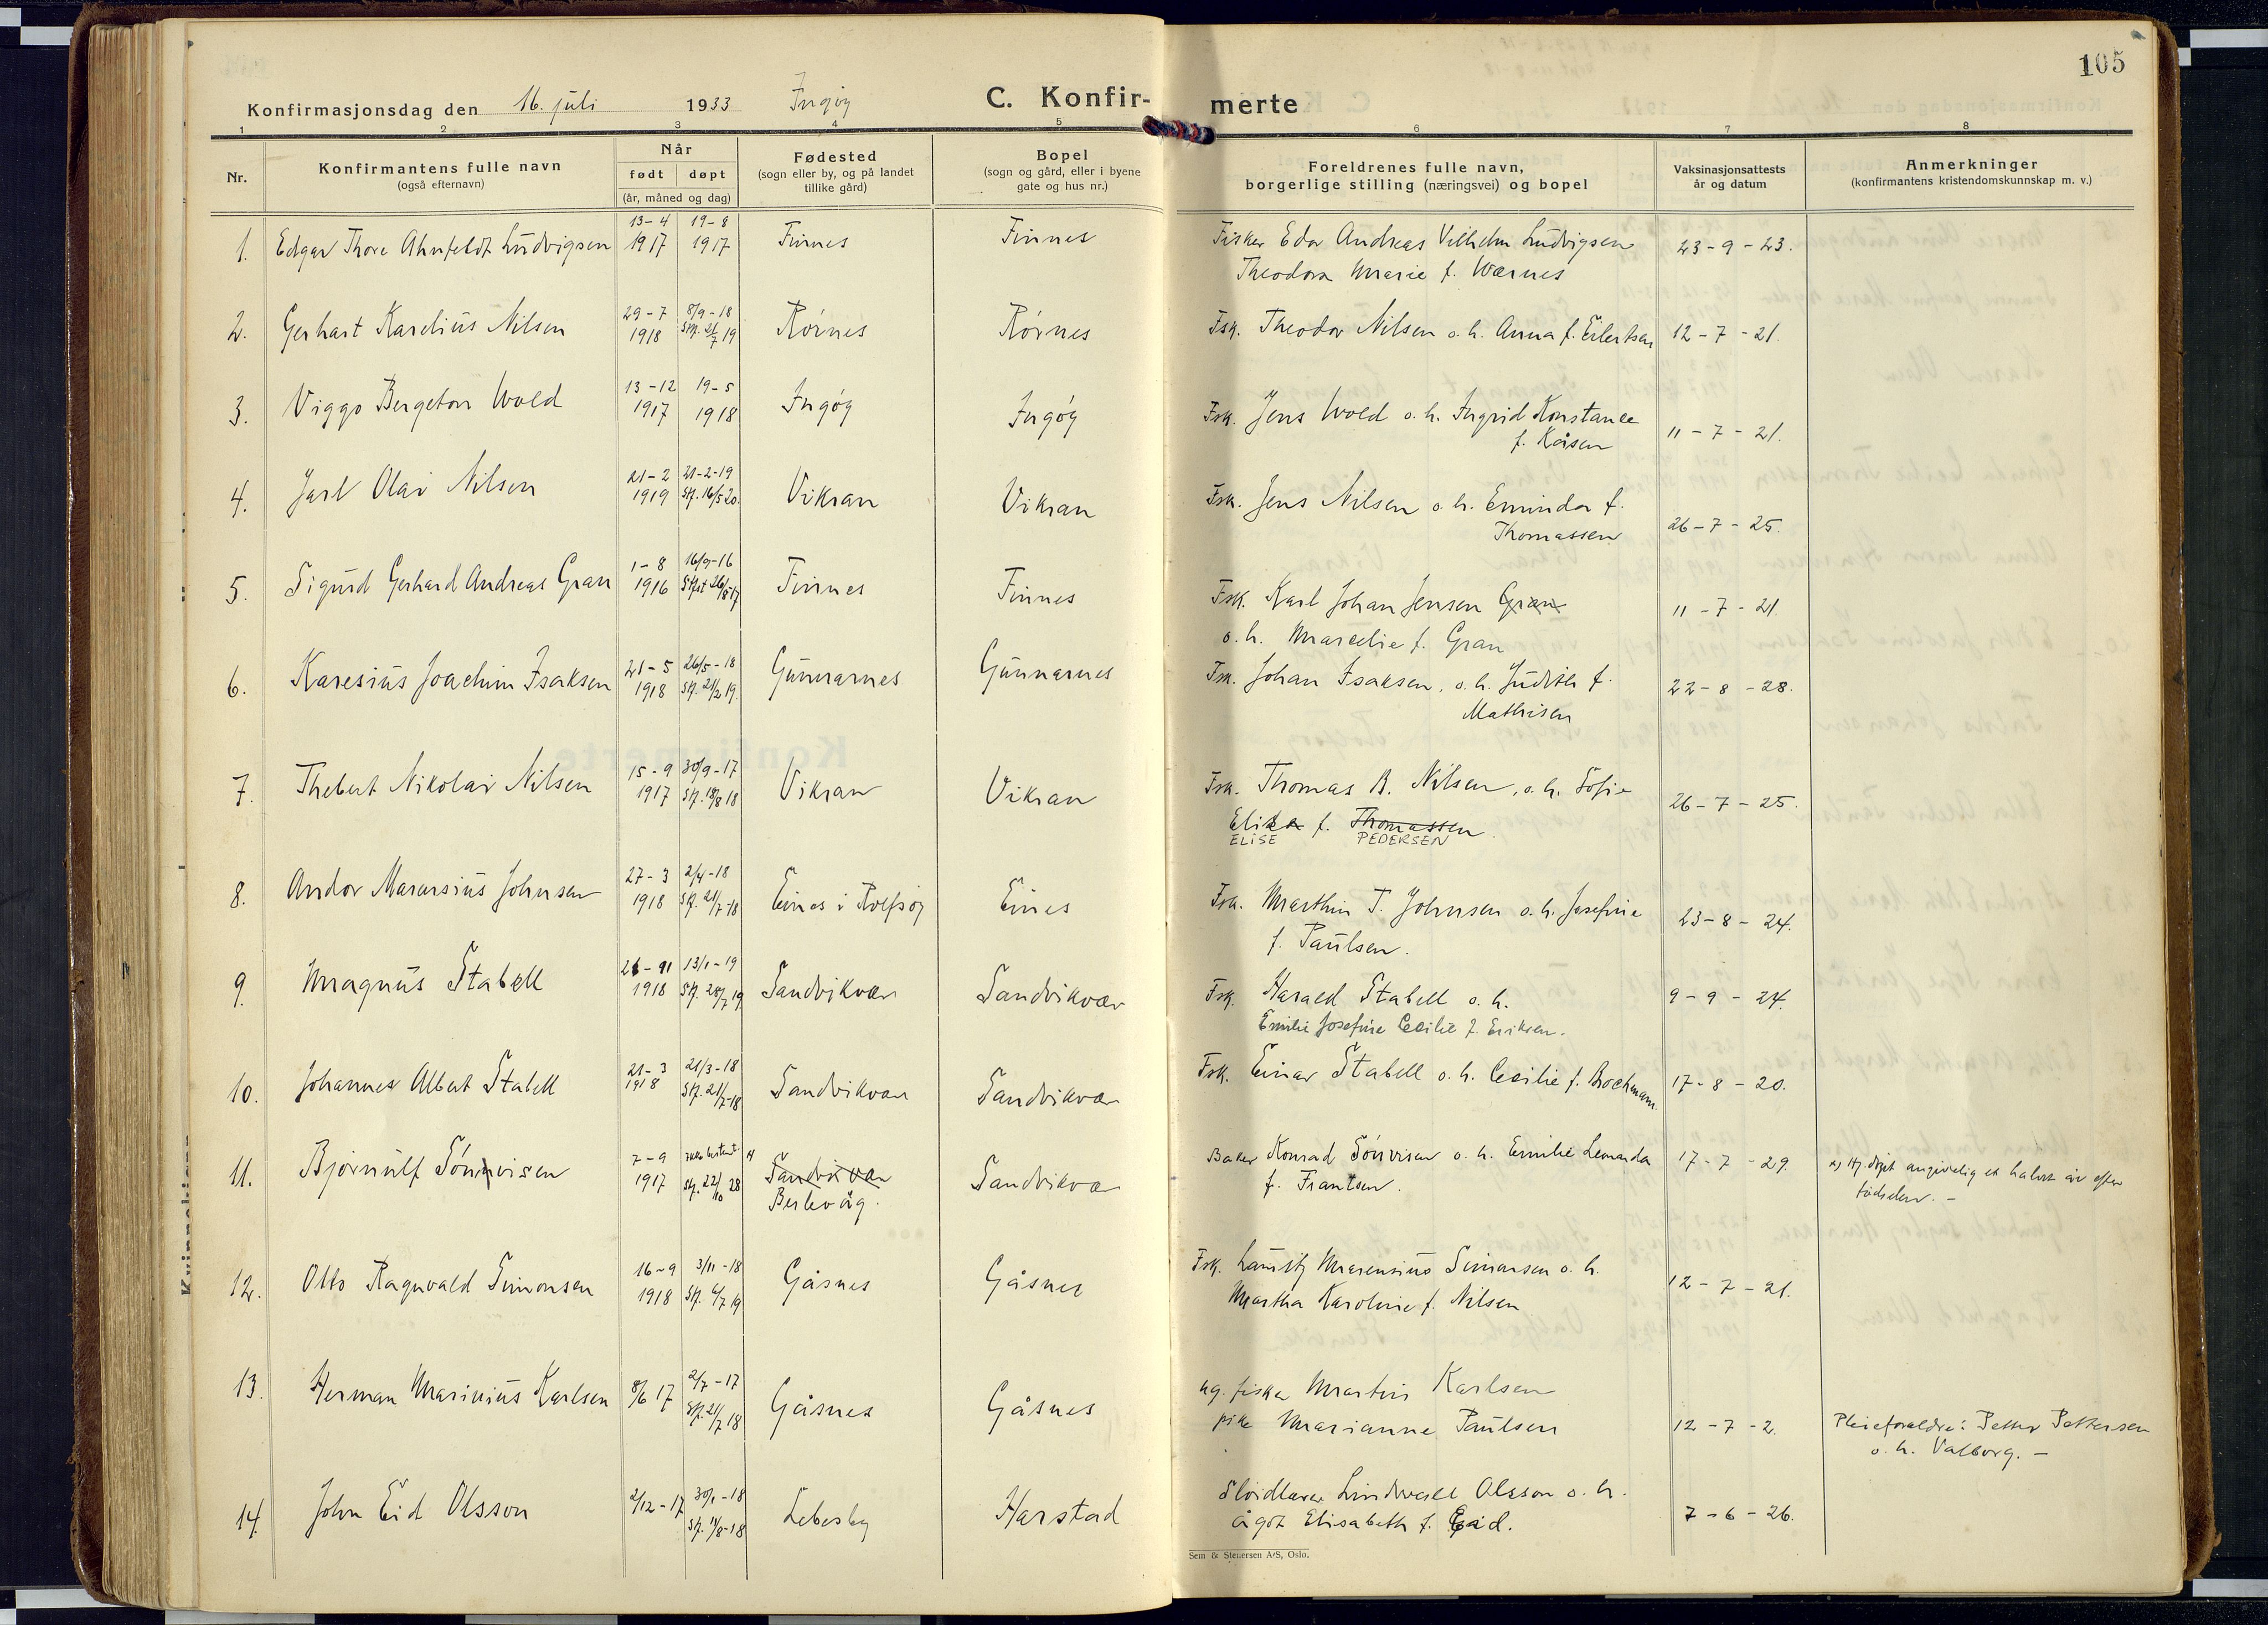 105
Konfirmasjonsdag den 16. juli 1933 Ingøy
C. Konfir-merte
1 2 3 4 5 6 7 8
Nr.
Konfirmantens fulle navn
(også efternavn)
Når
født døpt
(år, måned og dag)
Fødested
(sogn eller by, og på landet
tillike gård)
Bopel
(sogn og gård, eller i byene
gate og hus nr.)
Foreldrenes fulle navn,
borgerlige stilling (næringsvei) og bopel
Vaksinasjonsattests
år og datum
Anmerkninger
(konfirmantens kristendomskunnskap m. v.)
1. Edgar Thore Ahnfeldt Ludvigsen 13-4 1917 19-8 1917 Finnes Finnes Fisker Edor Andreas Vilhelm Ludvigsen 23-9-23.
Theodora Marie f. Wærnes
2. Gerhart Karelius Nilsen 29-7 1918 8/9-18 Stf. 21/7 19 Rørnes Rørnes Fsk. Theodor Nilsen o.h. Anna f. Eilertsen 12-7-21.
3. Viggo Bergeton Wold 13-12 1917 19-5 1918 Ingøy Ingøy Fsk. Jens Wold o.h. Ingrid Konstance
f. Kåsen 11-7-21.
4. Jarl Olai Nilsen 21-2 1919 21-2-19 Stf. 16/5 20. Vikran Vikran Fsk. Jens Nilsen o.h. Eminda f.
Thomassen 26-7-25.
5. Sigurd Gerhard Andreas Gran 1-8 1916 16/9-16 Stfst 26/8 17 Finnes Finnes Fsk. Karl Johan Jensen Gran 11-7-21.
o.h. Marcelie f. Gran
6. Karesius Joachim Isaksen 21-5 1918 26/5-18 Stf. 21/2 19. Gunnarnes Gunnarnes Fsk. Johan Isaksen, o.h. Judith f. 22-8-28.
Mathisen
7. Thebert Nikolai Nilsen 15-9 1917 30/9-17 Stf. 18/8 18 Vikran Vikran Fsk. Thomas B. Nilsen, o.h. Sofie 26-7-25.
Elisa f. Thomassen.
ELISE PEDERSEN
8. Andor Marensius Johnsen 27-3 1918 2/4-18 Stf. 21/7-18 Eines i Rolfsøy Eines Fsk. Marthin T. Johnsen o.h. Josefine 23-8-24.
f. Paulsen.
9. Magnus Stabell 1918 13/1-19 Stf. 28/7 19 Sandvikvær Sandvikvær Fsk. Harald Stabell o.h. 9-9-24.
Emilie Josefine Cecilie f. Eriksen.
10. Johannes Albert Stabell 21-3 1918 21/3-18 Stf. 21/7-18 Sandvikvær Sandvikvær Fsk. Einar Stabell o.h. Cecilie f. Brochmann. 17-8-20.
11. Bjørnulf Sønnvisen 7-9 1917 Stf. 22/10 28 Sandvikvær Sandvikvær Baker Konrad Sønvisen o.h. Emilie Leonarda 17-7-29. Hj. døpt angivelig et halvt år efter
Berlevåg. f. Frantsen. fødselen. -
12. Otto Ragnvald Simonsen 16-9 1918 3/11-18 Stf. 6/7 19 Gåsnes Gåsnes Fsk. Lauritz Marensius Simonsen o.h. 12-7-21.
Martha Karoline f. Nilsen
13. Herman Marinius Karlsen 8/6 17 2/7-17 Stf. 21/7 18 Gåsnes Gåsnes ug. fisker Martin Karlsen
pike Marianne Paulsen 12-7-2. Pleieforeldre: Petter Pettersen
o. h. Valborg. -
14. John Eid Olsson 2/12-17 30/1-18 Stf. 11/8-18 Lebesby Harstad Sløidlærer Lindvall Olsson o.h.
Ågot Elisabeth f. Eid. 7-6-26.
Sem & Stenersen A/S, Oslo.